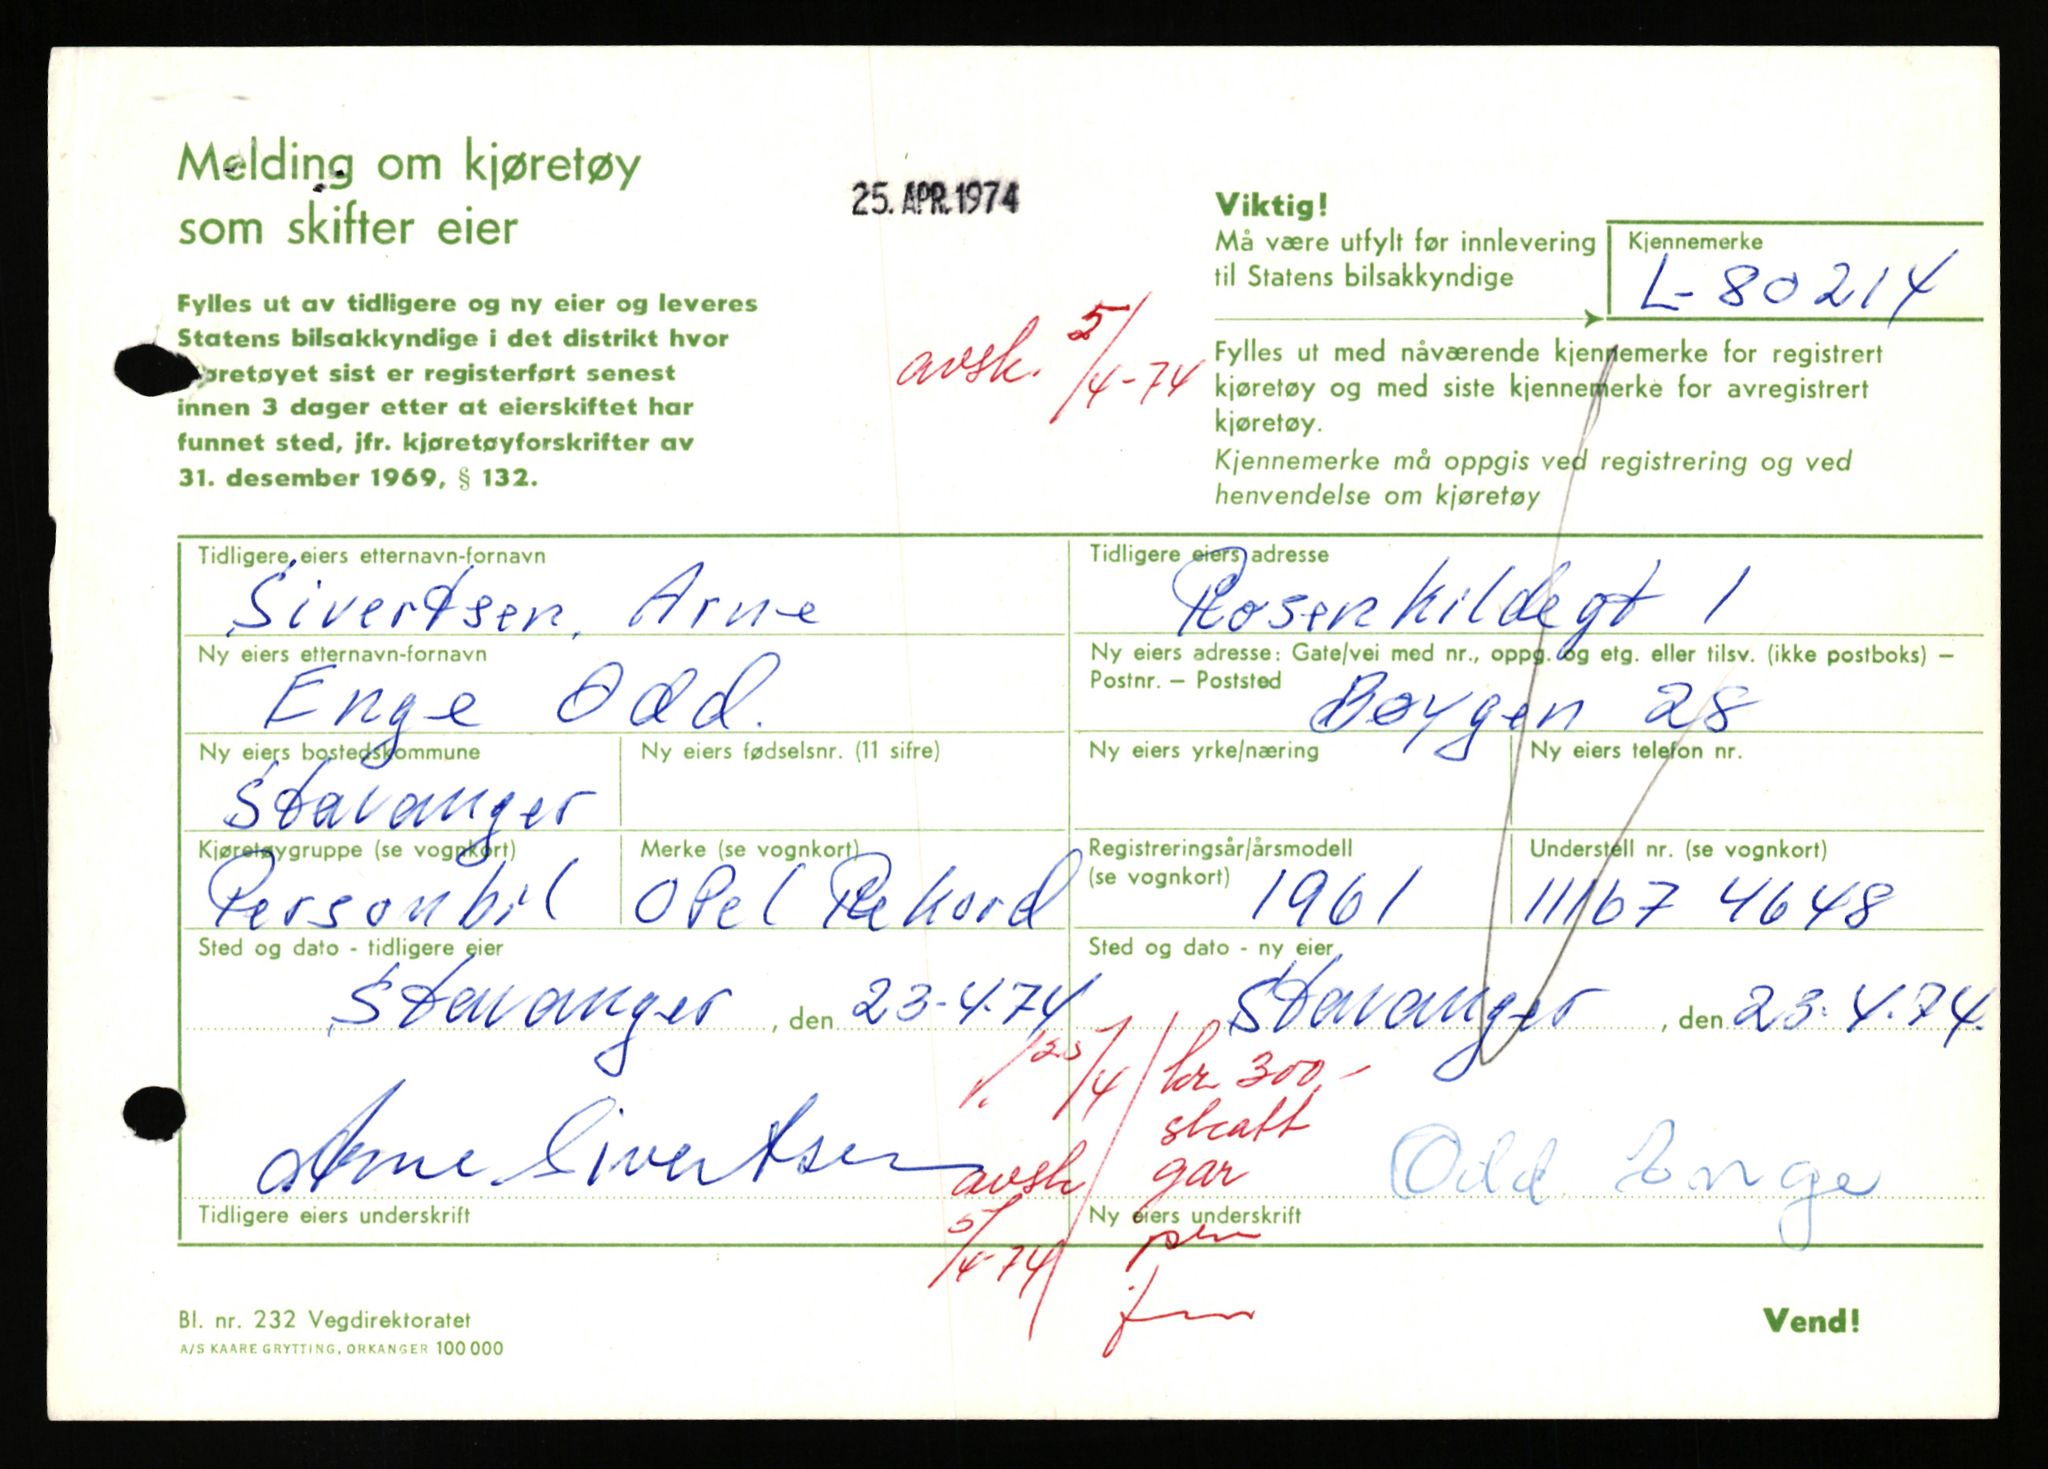 Melding om kjøretøy
som skifter eier
25. APR. 1974
Fylles ut av tidligere og ny eier og leveres
Statens bilsakkyndige i det distrikt hvor
øretøyet sist er registerført senest
innen 3 dager etter at eierskiftet har
funnet sted, jfr. kjøretøyforskrifter av
31. desember 1969, § 132.
avsk. 5/4-74
Viktig!
Må være utfylt før innlevering
til Statens bilsakkyndige
Kjennemerke
L-80214
Fylles ut med nåværende kjennemerke for registrert
kjøretøy og med siste kjennemerke for avregistrert
kjøretøy.
Kjennemerke må oppgis ved registrering og ved
henvendelse om kjøretøy
Tidligere eiers etternavn-fornavn
Sivertsen, Arne
Tidligere eiers adresse
Rosenkildegt 1
Ny eiers etternavn-fornavn
Enge Odd.
Ny eiers adresse: Gate/vei med nr., oppg. og etg. eller tilsv. (ikke postboks) –
Postnr. – Poststed
Bøygen 28
Ny eiers bostedskommune
Stavanger
Ny eiers fødselsnr. (11 sifre)
Ny eiers yrke/næring
Ny eiers telefon nr.
Kjøretøygruppe (se vognkort)
Personbil
Merke (se vognkort)
OPel Rekord
Registreringsår/årsmodell
(se vognkort)
1961
Understell nr. (se vognkort)
11167 4648
Sted og dato - tidligere eier
Stavanger, den 23-4.74
Sted og dato - ny eier
Stavanger, den 23.4.74.
25/4
kr. 300,-
skatt
gar
Arne Sivertsen
avsk
5/4-74
Odd Enge
Tidligere eiers underskrift
Ny eiers underskrift
Bl. nr. 232 Vegdirektoratet
A/S KAARE GRYTTING, ORKANGER 100 000
Vend!